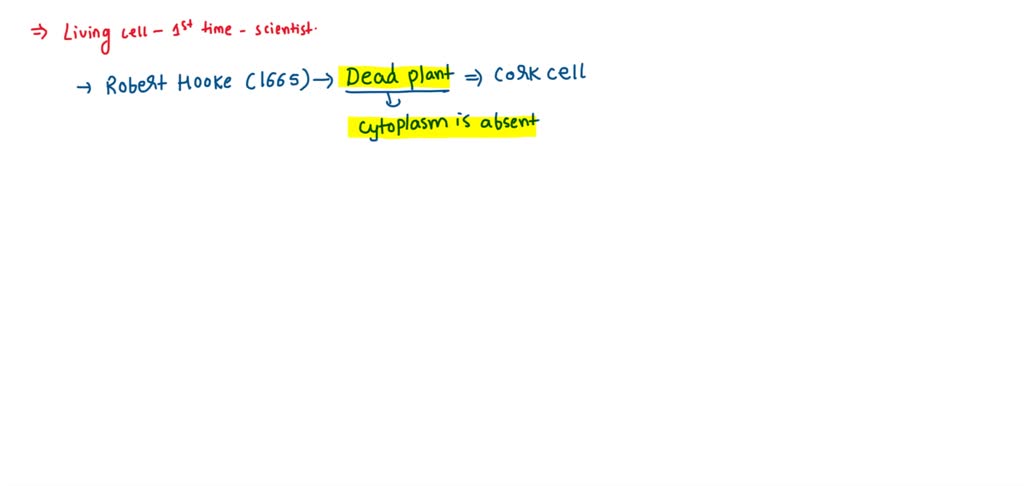 ⇒ Living cell - 1st time - scientist.
→ Robert Hooke (1665) → Dead plant ⇒ Cork cell
cytoplasm is absent